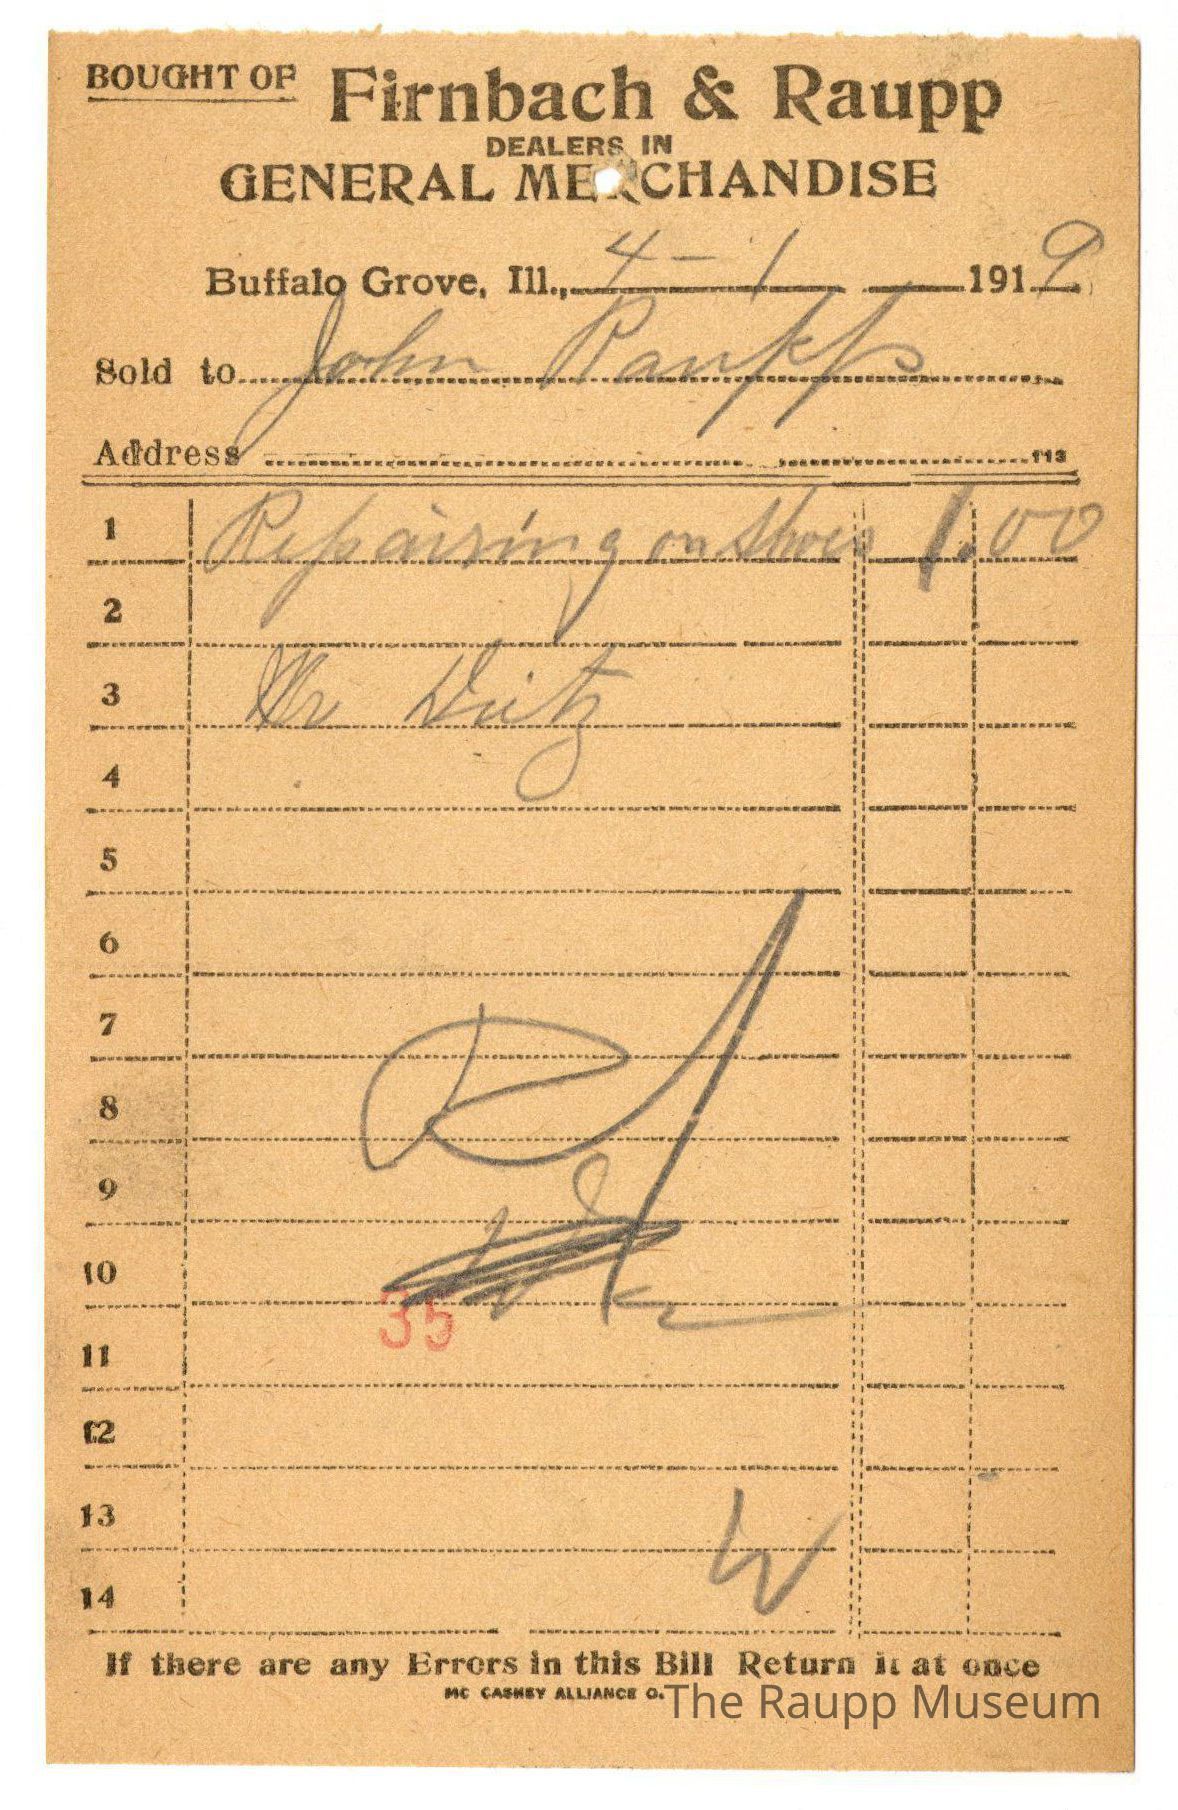 BOUGHT OF Firnbach & Raupp
DEALERS IN
GENERAL MERCHANDISE
Buffalo Grove, Ill., 4 - 1 1919
Sold to John Raupp
Address 113
1 Repairing on Shoes 1.00
2
3 Mr Dietz
4
5
6
7
8
9
10
35
11
12
13
W
14
If there are any Errors in this Bill Return it at once
MC CASKEY ALLIANCE O.
The Raupp Museum